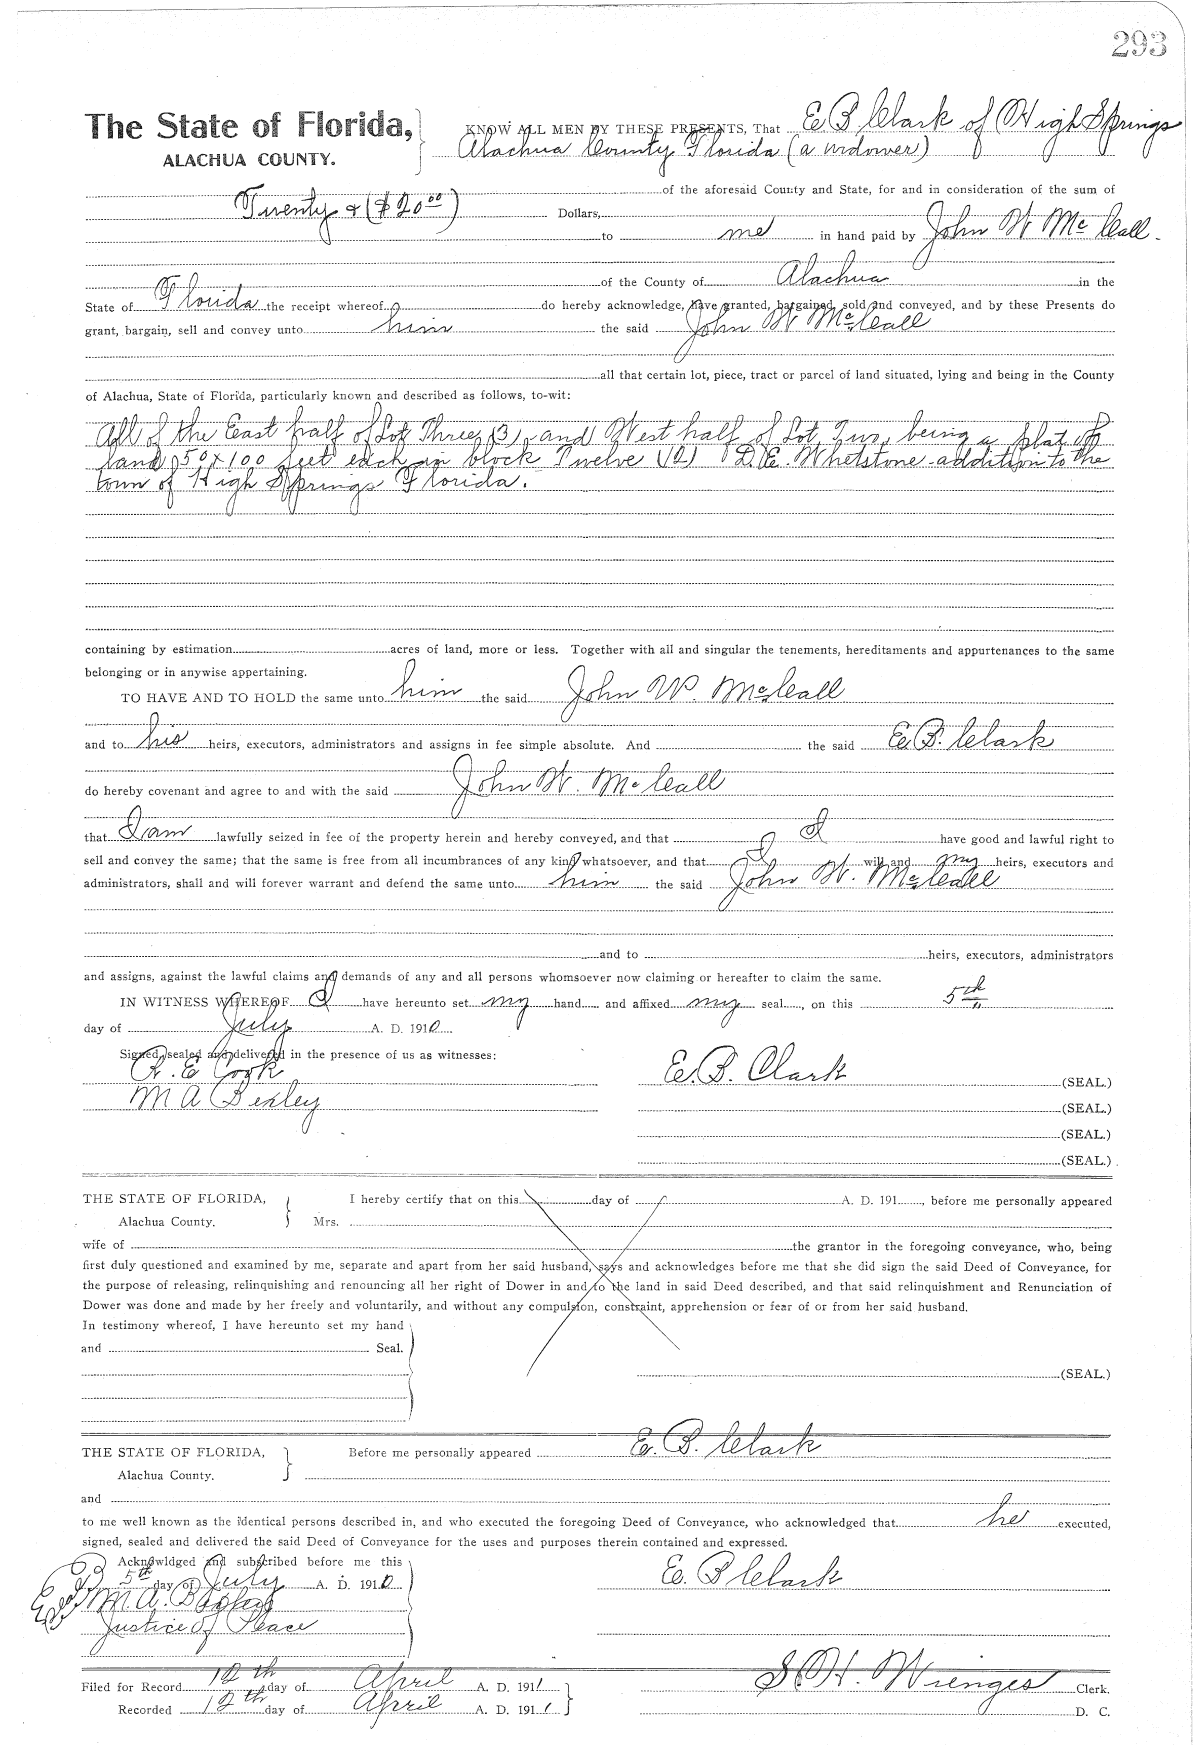 293
The State of Florida,
ALACHUA COUNTY.
KNOW ALL MEN BY THESE PRESENTS, That E B Clark of High Springs
Alachua County Florida (a widower)
of the aforesaid County and State, for and in consideration of the sum of
Twenty & ($20.00) Dollars,
to me in hand paid by John W McCall.
of the County of Alachua in the
State of Florida the receipt whereof do hereby acknowledge, have granted, bargained, sold and conveyed, and by these Presents do
grant, bargain, sell and convey unto him the said John W McCall
all that certain lot, piece, tract or parcel of land situated, lying and being in the County
of Alachua, State of Florida, particularly known and described as follows, to-wit:
All of the East half of Lot Three (3), and West half of Lot Two, being a plat of
land 50 x 100 feet each in block Twelve (12) D.E. Whetstone addition to the
town of High Springs Florida.
containing by estimation acres of land, more or less. Together with all and singular the tenements, hereditaments and appurtenances to the same
belonging or in anywise appertaining.
TO HAVE AND TO HOLD the same unto him the said John W. McCall
and to his heirs, executors, administrators and assigns in fee simple absolute. And the said E. B. Clark
do hereby covenant and agree to and with the said John W. McCall
that I am lawfully seized in fee of the property herein and hereby conveyed, and that I have good and lawful right to
sell and convey the same; that the same is free from all incumbrances of any kind whatsoever, and that I will and my heirs, executors and
administrators, shall and will forever warrant and defend the same unto him the said John W. McCall
and to heirs, executors, administrators
and assigns, against the lawful claims and demands of any and all persons whomsoever now claiming or hereafter to claim the same.
IN WITNESS WHEREOF I have hereunto set my hand and affixed my seal, on this 5th
day of July A. D. 1910
Signed, sealed and delivered in the presence of us as witnesses:
R. E Cook
E. B. Clark (SEAL.)
M A Bexley
(SEAL.)
(SEAL.)
(SEAL.)
THE STATE OF FLORIDA, I hereby certify that on this day of A. D. 191, before me personally appeared
Alachua County. Mrs.
wife of the grantor in the foregoing conveyance, who, being
first duly questioned and examined by me, separate and apart from her said husband, says and acknowledges before me that she did sign the said Deed of Conveyance, for
the purpose of releasing, relinquishing and renouncing all her right of Dower in and to the land in said Deed described, and that said relinquishment and Renunciation of
Dower was done and made by her freely and voluntarily, and without any compulsion, constraint, apprehension or fear of or from her said husband.
In testimony whereof, I have hereunto set my hand
and Seal.
(SEAL.)
THE STATE OF FLORIDA, Before me personally appeared E. B. Clark
Alachua County.
and
to me well known as the identical persons described in, and who executed the foregoing Deed of Conveyance, who acknowledged that he executed,
signed, sealed and delivered the said Deed of Conveyance for the uses and purposes therein contained and expressed.
Acknowldged and subscribed before me this
5th day of July A. D. 1910
E. B Clark
M. A. Bexley
Justice of Peace
Filed for Record 12th day of April A. D. 1911
S. H. Wienges Clerk.
Recorded 12th day of April A. D. 1911
D. C.